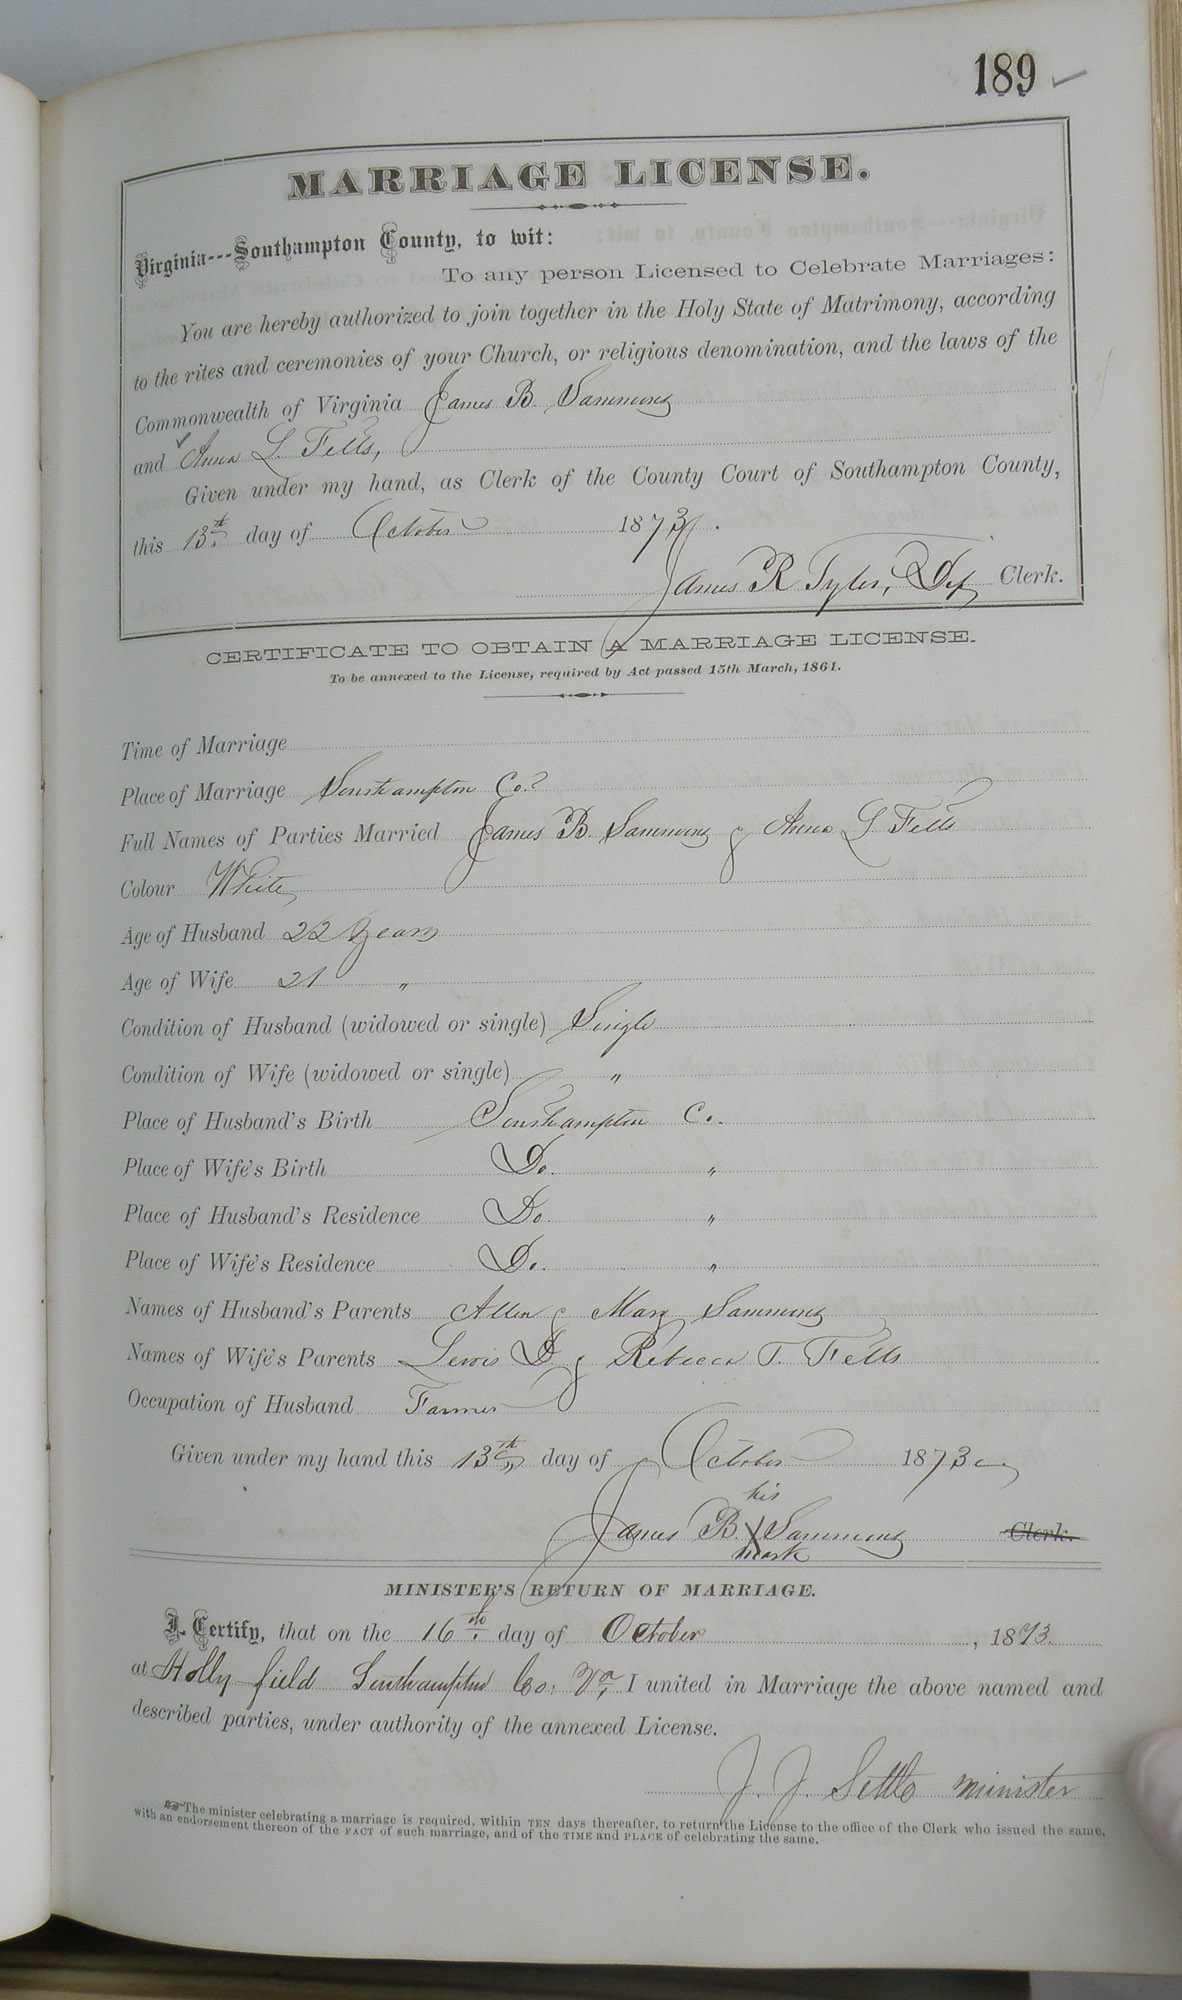 189
MARRIAGE LICENSE.
Virginia---Southampton County, to wit:
To any person Licensed to Celebrate Marriages:
You are hereby authorized to join together in the Holy State of Matrimony, according
to the rites and ceremonies of your Church, or religious denomination, and the laws of the
Commonwealth of Virginia James B. Sammons
and Anna L. Felts,
Given under my hand, as Clerk of the County Court of Southampton County,
this 13th day of October 1873.
James R Tyler, Dep Clerk.
CERTIFICATE TO OBTAIN A MARRIAGE LICENSE.
To be annexed to the License, required by Act passed 15th March, 1861.
Time of Marriage
Place of Marriage Southampton Co.
Full Names of Parties Married James B. Sammons & Anna L Felts
Colour White
Age of Husband 22 Years
Age of Wife 21 "
Condition of Husband (widowed or single) Single
Condition of Wife (widowed or single) "
Place of Husband's Birth Southampton Co.
Place of Wife's Birth Do. "
Place of Husband's Residence Do. "
Place of Wife's Residence Do. "
Names of Husband's Parents Allen & Mary Sammons
Names of Wife's Parents Lewis D. & Rebecca T. Felts
Occupation of Husband Farmer
Given under my hand this 13th day of October 1873
his
James B. X Sammons Clerk.
mark
MINISTER'S RETURN OF MARRIAGE.
I Certify, that on the 16th day of October, 1873.
at Holly field Southampton Co: Va, I united in Marriage the above named and
described parties, under authority of the annexed License.
J. J. Settle minister
The minister celebrating a marriage is required, within TEN days thereafter, to return the License to the office of the Clerk who issued the same,
with an endorsement thereon of the FACT of such marriage, and of the TIME and PLACE of celebrating the same.